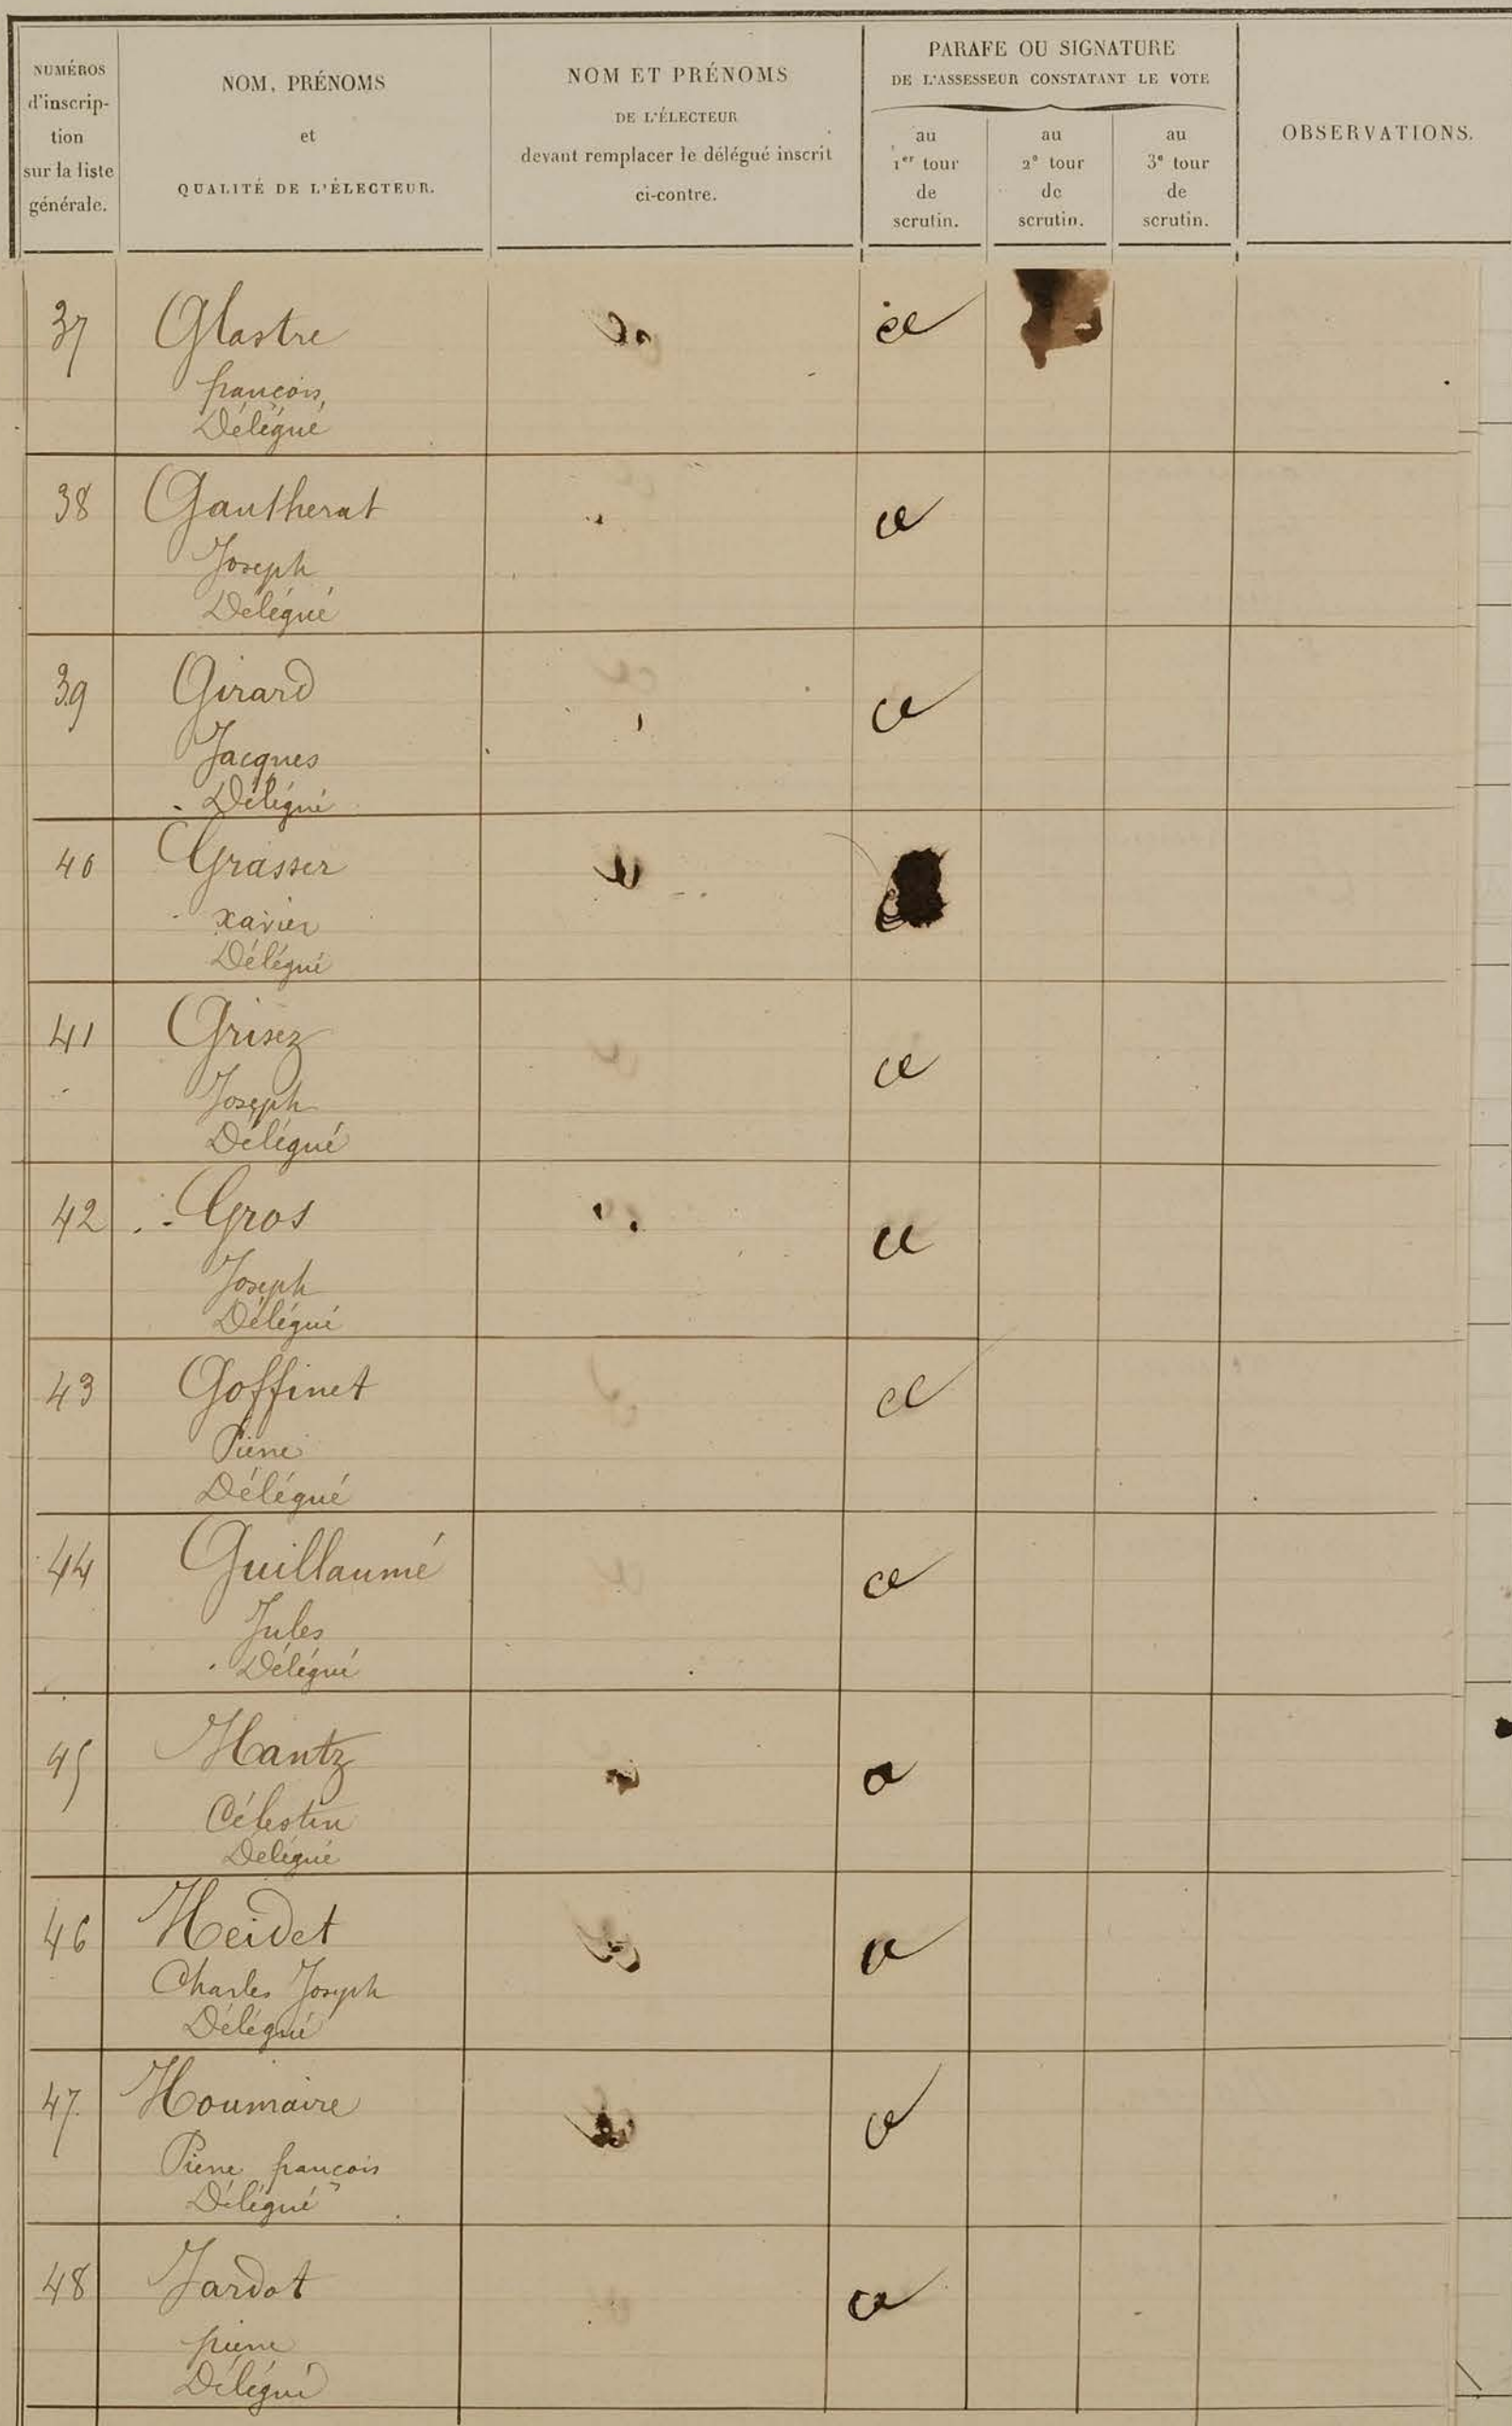 NUMÉROS
d'inscrip-
tion
sur la liste
générale.
NOM, PRÉNOMS
et
QUALITÉ DE L'ÉLECTEUR.
NOM ET PRÉNOMS
DE L'ÉLECTEUR
devant remplacer le délégué inscrit
ci-contre.
PARAFE OU SIGNATURE
DE L'ASSESSEUR CONSTATANT LE VOTE
au
1er tour
de
scrutin.
au
2e tour
de
scrutin.
au
3e tour
de
scrutin.
OBSERVATIONS.
37 Glastre
françois,
Délégué
38 Gautherat
Joseph
Délégué
39 Girard
Jacques
Délégué
40 Grasser
xavier
Délégué
41 Grisez
Joseph
Délégué
42 Gros
Joseph
Délégué
43 Goffinet
Pierre
Délégué
44 Guillaumé
Jules
Délégué
45 Hantz
Célestin
Délégué
46 Heidet
Charles Joseph
Délégué
47 Houmaire
Pierre françois
Délégué
48 Jardot
pierre
Délégué